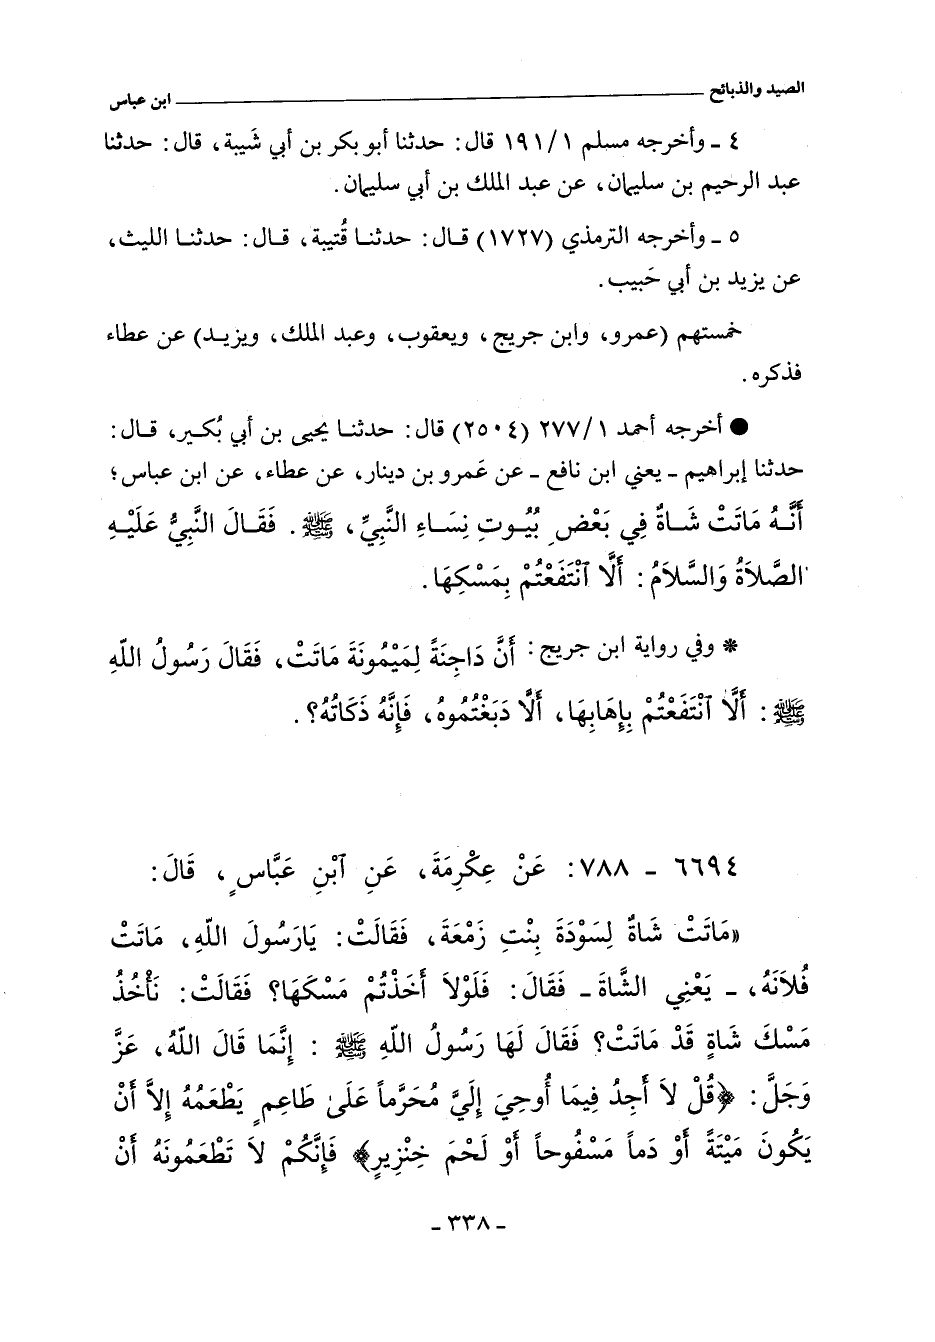 الصيد والذبائح ــــــــــــــــ ابن عباس
٤ ـ وأخرجه مسلم ١/ ١٩١ قال: حدثنا أبو بكر بن أبي شَيبة، قال: حدثنا
عبد الرحيم بن سليمان، عن عبد الملك بن أبي سليمان.
٥ ـ وأخرجه الترمذي (١٧٢٧) قال: حدثنا قُتيبة، قال: حدثنا الليث،
عن يزيد بن أبي حَبيب.
خمستهم (عمرو، وابن جريج، ويعقوب، وعبد الملك، ويزيد) عن عطاء
فذكره.
● أخرجه أحمد ١/ ٢٧٧ (٢٥٠٤) قال: حدثنا يحيى بن أبي بُكير، قال:
حدثنا إبراهيم ـ يعني ابن نافع ـ عن عَمرو بن دينار، عن عطاء، عن ابن عباس؛
أَنَّهُ مَاتَتْ شَاةٌ فِي بَعْضِ بُيُوتِ نِسَاءِ النَّبِيِّ، ﷺ. فَقَالَ النَّبِيُّ عَلَيْهِ
الصَّلاَةُ وَالسَّلاَمُ: أَلَّا ٱنْتَفَعْتُمْ بِمَسْكِهَا.
* وفي رواية ابن جريج: أَنَّ دَاجِنَةً لِمَيْمُونَةَ مَاتَتْ، فَقَالَ رَسُولُ اللهِ
ﷺ: أَلَّا ٱنْتَفَعْتُمْ بِإِهَابِهَا، أَلَّا دَبَغْتُمُوهُ، فَإِنَّهُ ذَكَاتُهُ؟.
٦٦٩٤ ـ ٧٨٨: عَنْ عِكْرِمَةَ، عَنِ ٱبْنِ عَبَّاسٍ، قَالَ:
«مَاتَتْ شَاةٌ لِسَوْدَةَ بِنْتِ زَمْعَةَ، فَقَالَتْ: يَارَسُولَ اللهِ، مَاتَتْ
فُلاَنَهُ، ـ يَعْنِي الشَّاةَ ـ فَقَالَ: فَلَوْلاَ أَخَذْتُمْ مَسْكَهَا؟ فَقَالَتْ: نَأْخُذُ
مَسْكَ شَاةٍ قَدْ مَاتَتْ؟ فَقَالَ لَهَا رَسُولُ اللهِ ﷺ: إِنَّمَا قَالَ اللهُ، عَزَّ
وَجَلَّ: ﴿قُلْ لاَ أَجِدُ فِيمَا أُوحِيَ إِلَيَّ مُحَرَّماً عَلَىٰ طَاعِمٍ يَطْعَمُهُ إِلاَّ أَنْ
يَكُونَ مَيْتَةً أَوْ دَماً مَسْفُوحاً أَوْ لَحْمَ خِنْزِيرٍ﴾ فَإِنَّكُمْ لاَ تَطْعَمُونَهُ أَنْ
ـ ٣٣٨ ـ